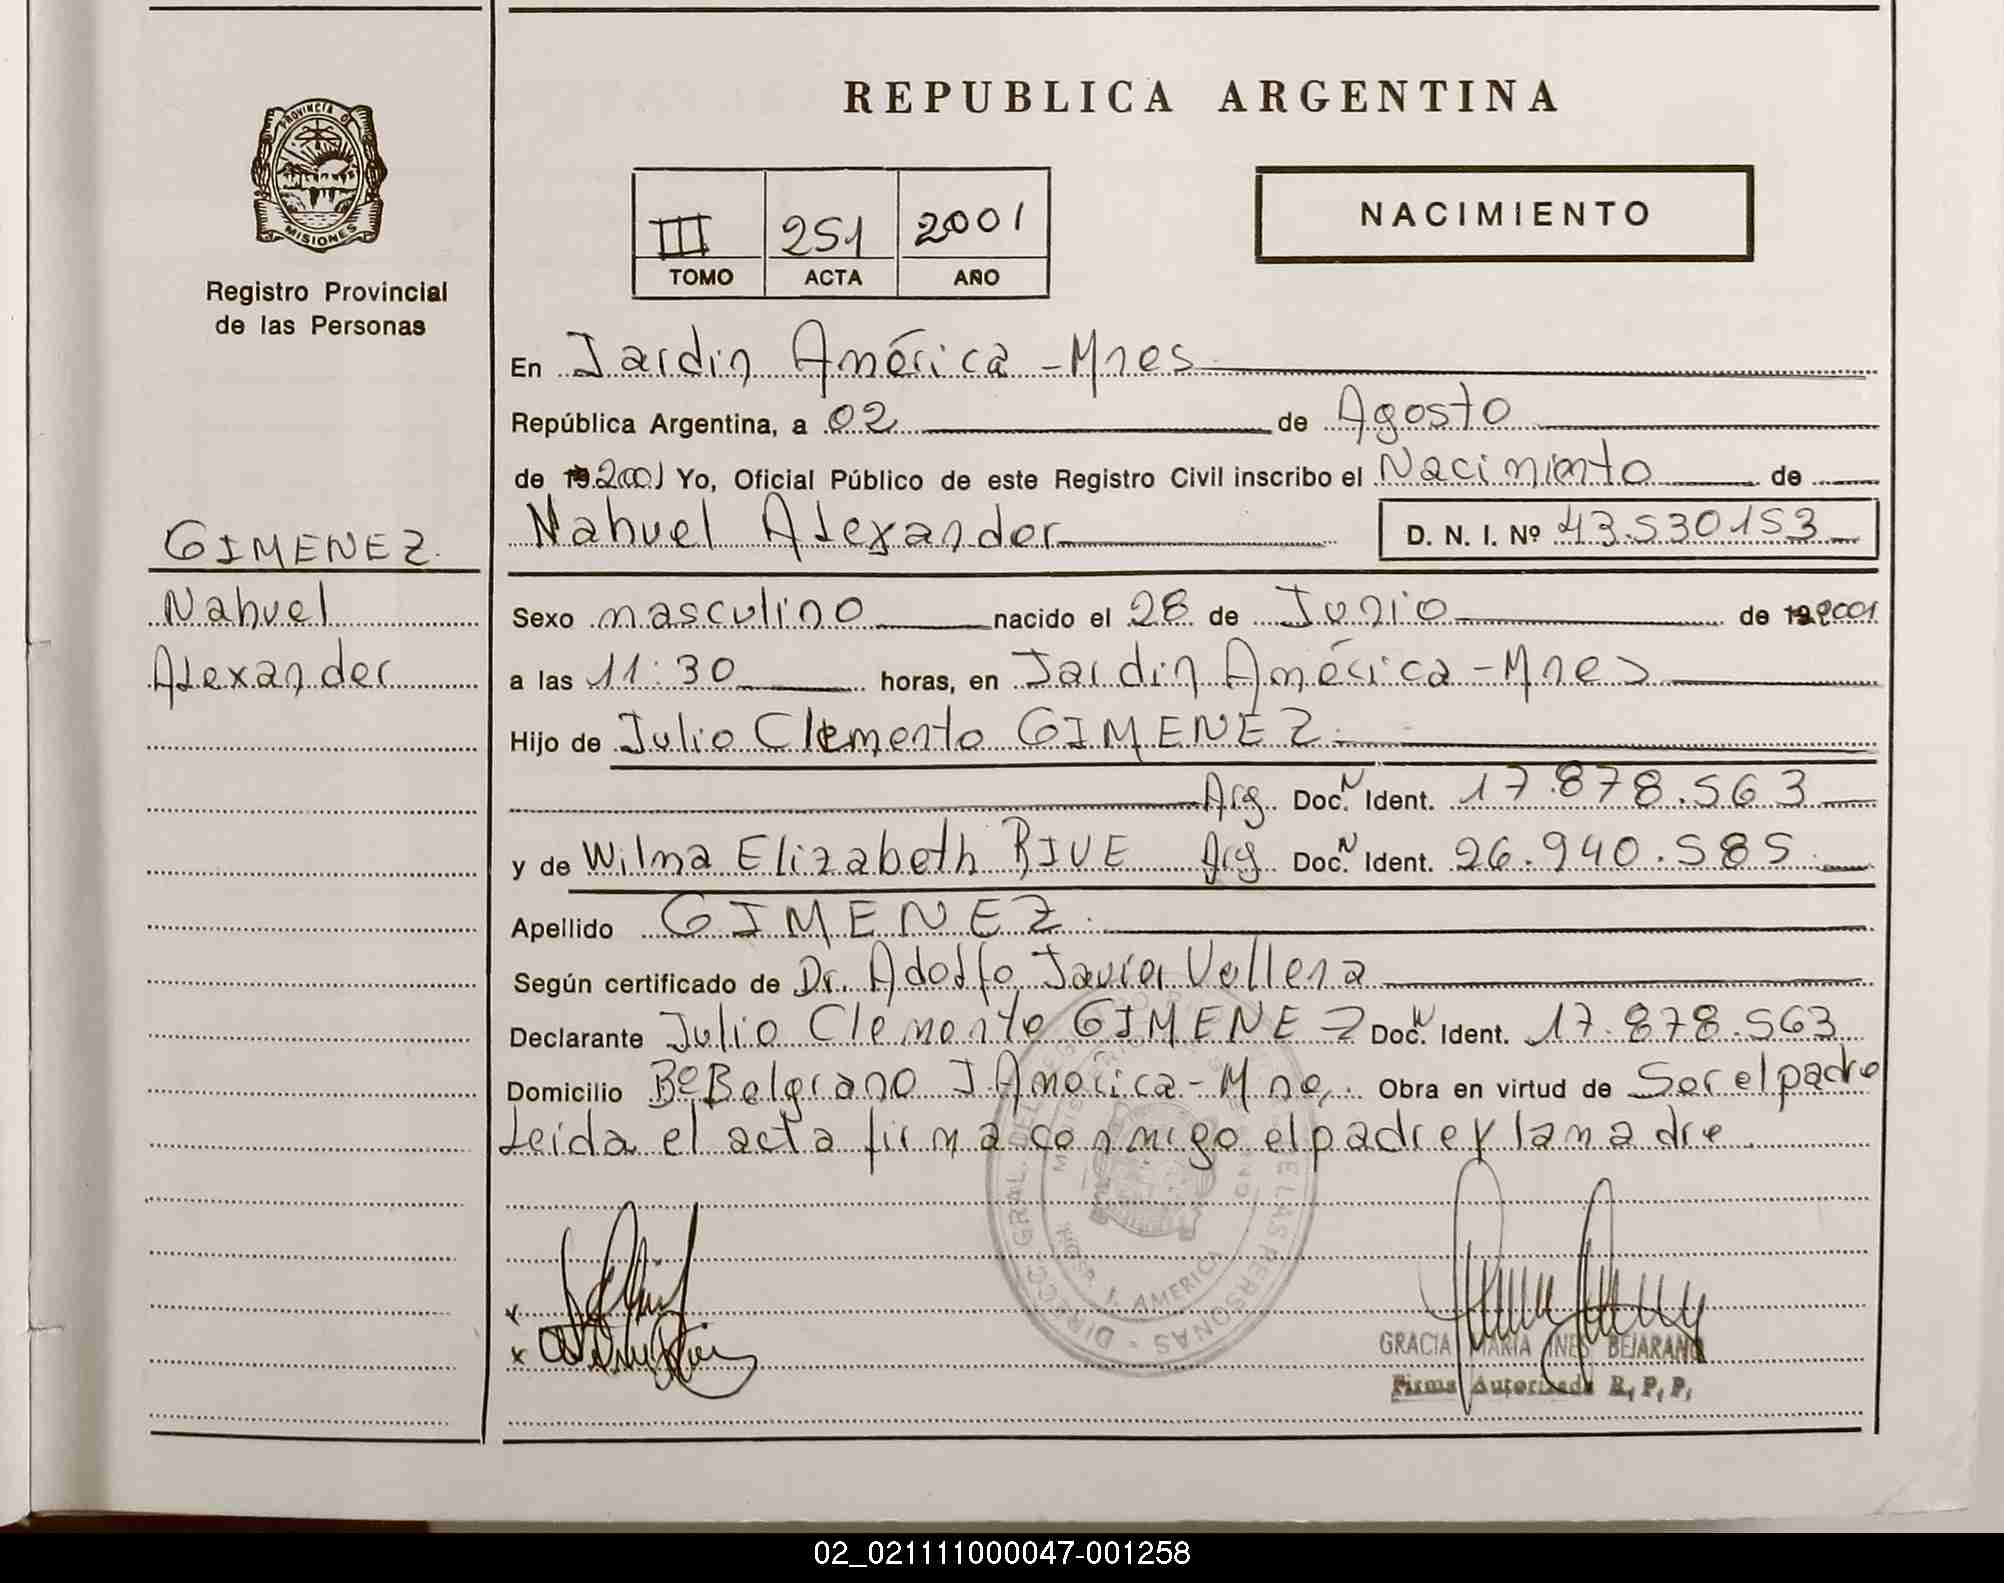 REPUBLICA ARGENTINA
PROVINCIA D
MISIONES
Registro Provincial
de las Personas
III 251 2001
TOMO ACTA AÑO
NACIMIENTO
En Jardin América - Mnes
República Argentina, a 02 de Agosto
de 19 2001 Yo, Oficial Público de este Registro Civil inscribo el Nacimiento de
Nahuel Alexander D. N. I. Nº 43.530153
GIMENEZ
Nahuel
Alexander
Sexo masculino nacido el 28 de Junio de 19 2001
a las 11:30 horas, en Jardin América - Mnes
Hijo de Julio Clemente GIMENEZ
Arg. Doc. N Ident. 17.878.563
y de Wilma Elizabeth RIVE Arg Doc. N Ident. 26.940.585
Apellido GIMENEZ
Según certificado de Dr. Adolfo Javier
Declarante Julio Clemente GIMENEZ Doc. N Ident. 17.878.563
Domicilio Bº Belgrano J. America - Mne, Obra en virtud de Ser el padre
Leida el acta firma conmigo el padre y la madre
DIRECC. GRAL. DEL REGISTRO DE LAS PERSONAS
HOSP. J. AMERICA
x
x
GRACIA MARIA INES BEJARANO
Firma Autorizada R. P. P.
02_021111000047-001258